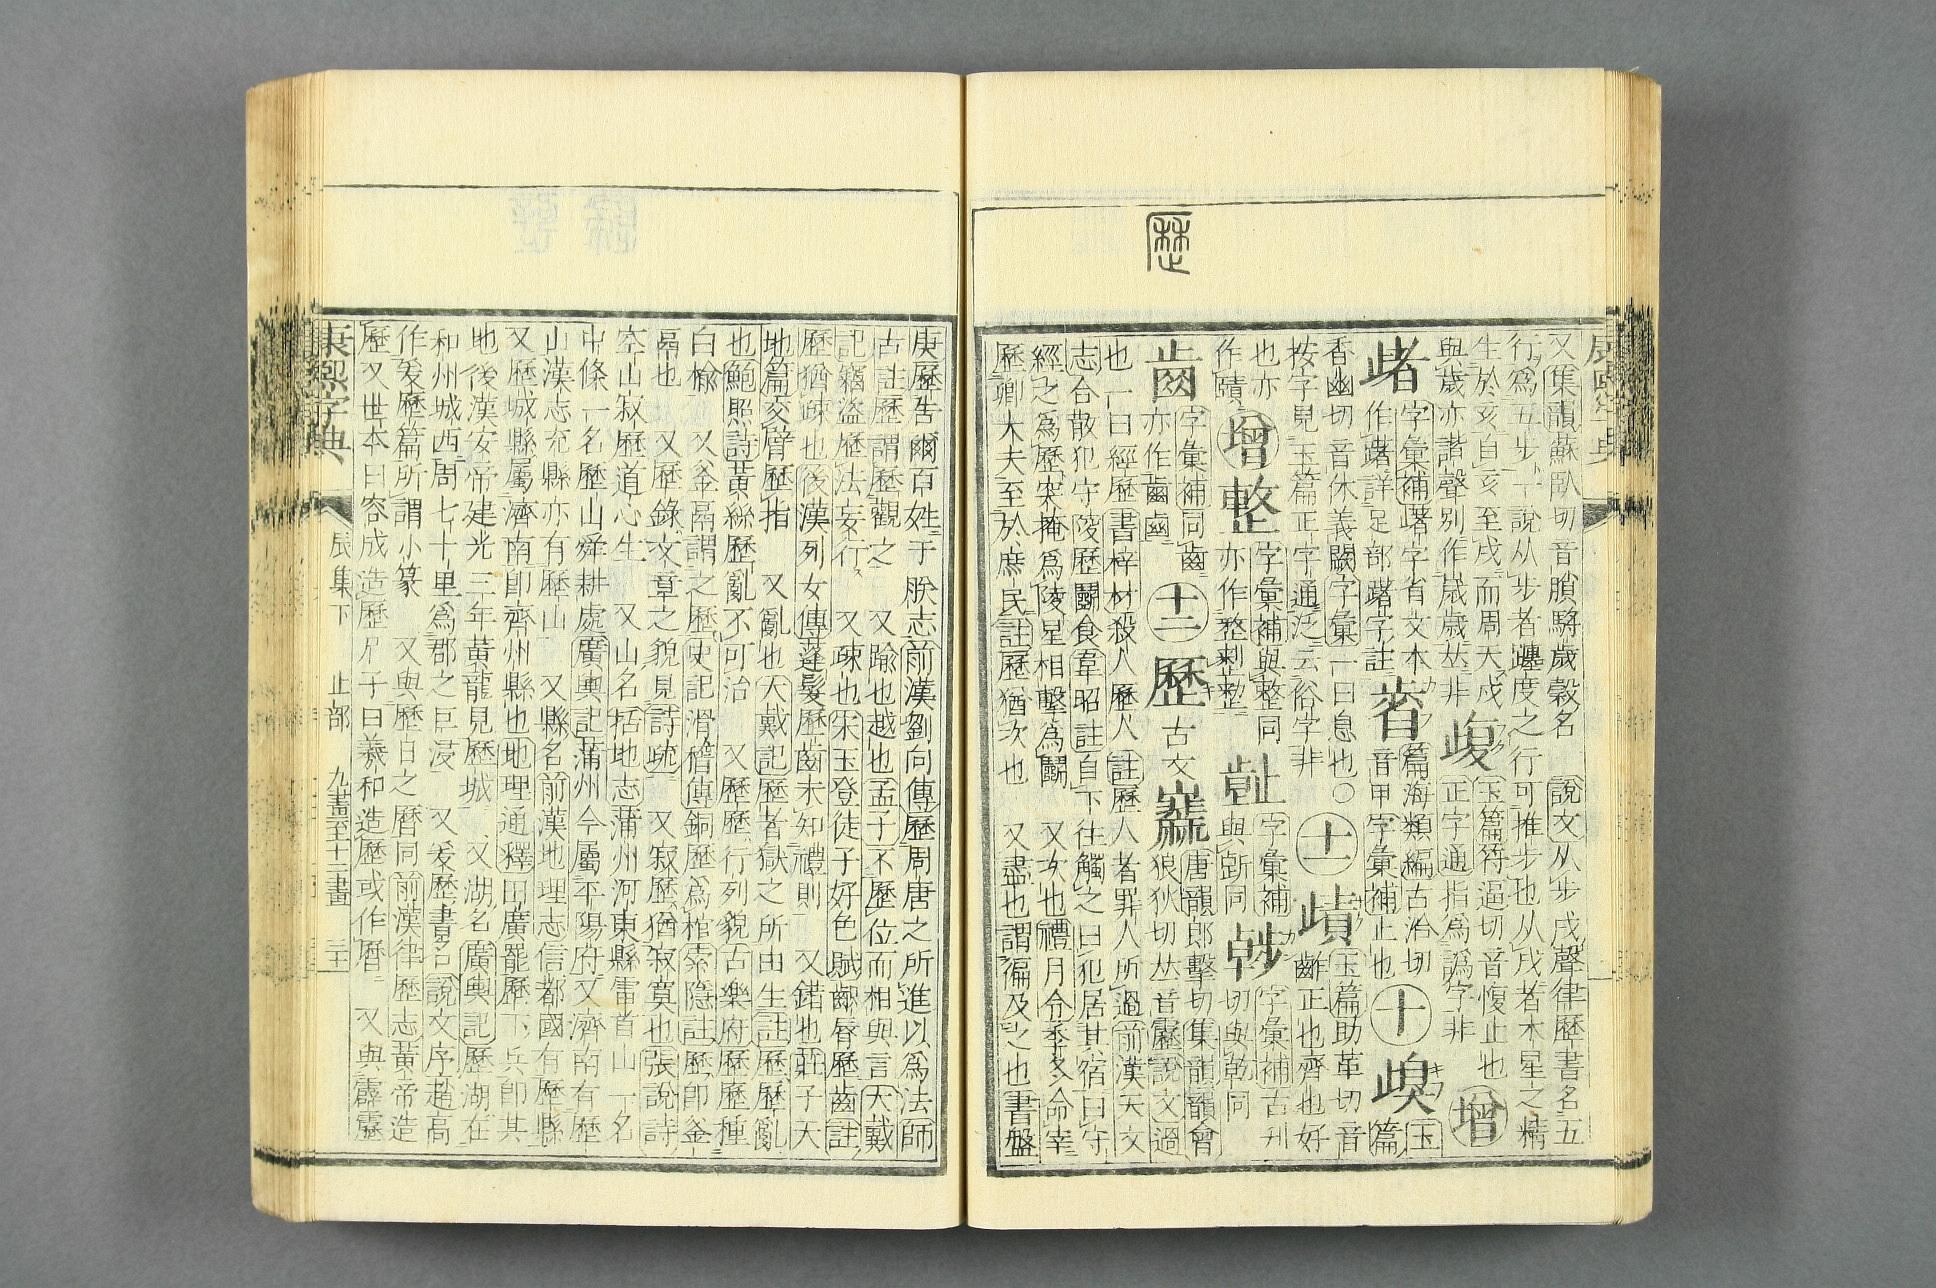 歷
又集韻蘇臥切音膹騂歲穀名 說文从步戌聲律歷書名五
行爲五步一說从步者躔度之行可推步也从戌者木星之精
生於亥自亥至戌而周天戌 玉篇符逼切音愎止也 增
與歲亦諧聲別作歳歲𠀤非 正字通指爲譌字非
字彙補踷字省文本 篇海類編古洽切 十 玉
作躇詳足部躇字註 音甲字彙補止也 篇
香幽切音休義闕字彙一曰息也〇十一 玉篇助革切音
按字見玉篇正字通泛云俗字非 齰正也齊也好
也亦 增 整 字彙補與整同 字彙補 字彙補古刋
作賾 亦作 與 同 切與乾同
齒 字彙補同齒 十二 歷 古文 唐韻郎擊切集韻韻會
亦作 狼狄切𠀤音靂說文過
也一曰經歷書梓材殺人歷人註歷人者罪人所過前漢天文
志合散犯守陵歷鬭食韋昭註自下往觸之曰犯居其宿曰守
經之爲歷突掩爲陵星相擊爲鬭 又次也禮月令季冬命宰
歷卿大夫至於庶民註歷猶次也 又盡也謂徧及之也書盤
庚歷告爾百姓于朕志前漢劉向傳歷周唐之所進以爲法師
古註歷謂歷觀之 又踰也越也孟子不歷位而相與言大戴
記竊盜歷法妄行 又疎也宋玉登徒子好色賦齞脣歷齒註
歷猶疎也後漢列女傳蓬髮歷齒未知禮則 又錯也莊子天
地篇交臂歷指 又亂也大戴記歷者獄之所由生註歷歷亂
也鮑照詩黃絲歷亂不可治 又歷歷行列貌古樂府歷歷種
白榆 又釜鬲謂之歷史記滑稽傳銅歷爲棺索隱註歷卽釜
鬲也 又歷錄文章之貌見詩疏 又寂歷猶寂寞也張說詩
空山寂歷道心生 又山名括地志蒲州河東縣雷首山一名
中條一名歷山舜耕處廣輿記蒲州今屬平陽府又濟南有歷
山漢志充縣亦有歷山 又縣名前漢地理志信都國有歷縣
又歷城縣屬濟南卽齊州縣也地理通釋田廣罷歷下兵卽其
地後漢安帝建光三年黃龍見歷城 又湖名廣輿記歷湖在
和州城西周七十里爲郡之巨浸 又爰歷書名說文序趙高
作爰歷篇所謂小篆 又與歷日之曆同前漢律歷志黃帝造
歷又世本曰容成造歷尸子曰羲和造歷或作曆 又與霹靂
康熙字典 辰集下 止部 九畫至十二畫